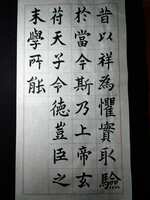 昔以祥為懼實取驗
於當今斯乃上帝玄
符天子令德豈臣之
末學所能